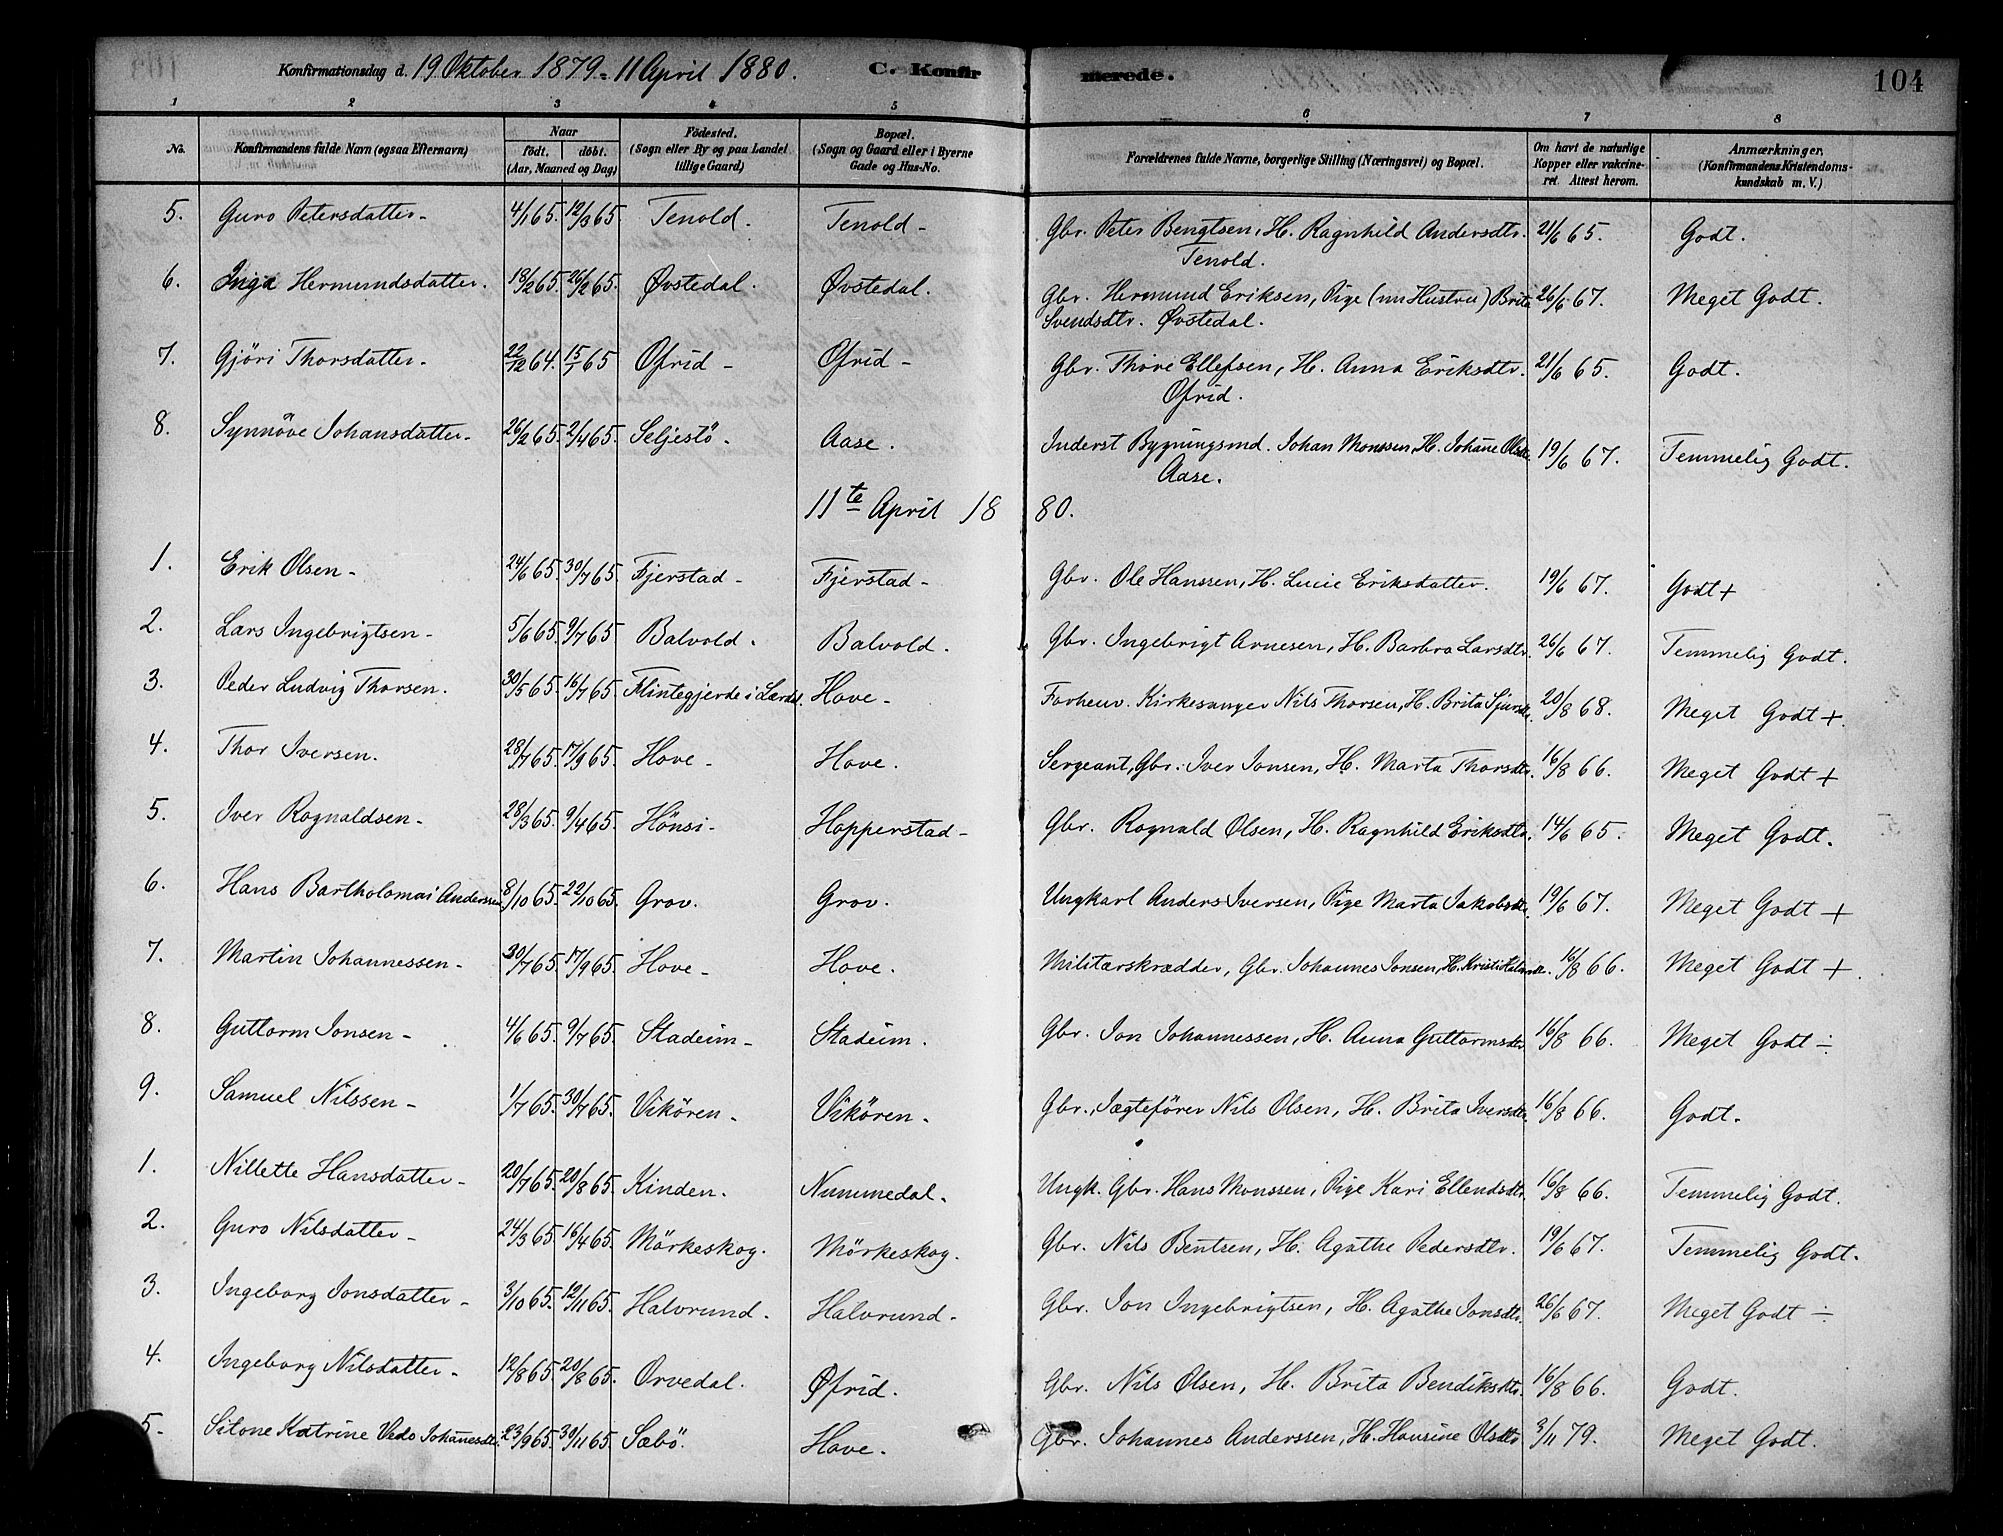 Konfirmationsdag d. 19 Oktober 1879 - 11 April 1880. C. Konfirmerede. 104
1 2 3 4 5 6 7 8
No. Konfirmandens fulde Navn (ogsaa Efternavn) Naar födt. döbt. (Aar, Maaned og Dag) Födested. (Sogn eller By og paa Landet tillige Gaard) Bopæl. (Sogn og Gaard eller i Byerne Gade og Hus-No. Forældrenes fulde Navne, borgerlige Stilling (Næringsvei) og Bopæl. Om havt de naturlige Kopper eller vakcineret. Attest herom. Anmærkninger. (Konfirmandens Kristendomskundskab m. V.)
5. Guro Petersdatter - 4/1 65. 12/3 65 Tenold. Tenold - Gbr. Peter Bengtsen, H. Ragnhild Andersdtr. 21/6 65. Godt.
Tenold.
6. Inga Hermundsdatter. 19/2 65. 26/2 65. Øvstedal. Øvstedal. Gbr. Hermund Eriksen, Pige (nu Hustru) Brita 26/6 67. Meget Godt.
Svendsdtr. Øvstedal.
7. Gjöri Thorsdatter - 22/12 64. 15/1 65 Ofrid - Ofrid - Gbr. Thore Ellefsen, H. Anna Eriksdtr. 21/6 65. Godt.
Ofrid.
8. Synnöve Johansdatter - 26/2 65. 2/4 65. Seljestö - Aase. Inderst Bygningsmd. Johan Monssen, H. Johane Olsdtr. 19/6 67. Temmelig Godt.
Aase.
11te April 1880.
1. Erik Olsen - 24/6 65. 30/7 65. Fjerstad - Fjerstad - Gbr. Ole Hanssen, H. Lucie Eriksdatter. 19/6 67. Godt +
2. Lars Ingebrigtsen - 5/6 65. 9/7 65 Balvold. Balvold. Gbr. Ingebrigt Arnesen, H. Barbra Larsdtr. 26/6 67. Temmelig Godt.
3. Peder Ludvig Thorsen. 30/5 65. 16/7 65 Flintegjerde i Lærdal. Hove - Forhenv. Kirkesanger Nils Thorsen, H. Brita Sjursdtr. 20/8 68. Meget Godt +.
4. Thor Iversen. 28/7 65. 17/9 65. Hove - Hove. Sergeant, Gbr. Iver Jonsen, H. Marta Thorsdtr. 16/8 66. Meget Godt +
5. Iver Rognaldsen - 28/3 65. 9/4 65. Hönsi - Hopperstad - Gbr. Rognald Olsen, H. Ragnhild Eriksdtr. 14/6 65. Meget Godt.
6. Hans Bartholomai Anderssen 8/10 65. 22/10 65. Grov. Grov. Ungkarl Anders Iversen, Pige Marta Jakobsdtr. 19/6 67. Meget Godt +
7. Martin Johannessen - 30/7 65. 17/9 65. Hove - Hove. Militærskrædder, Gbr. Johannes Jonsen, H. Kristi 16/8 66. Meget Godt +.
8. Guttorm Jonsen - 4/6 65. 9/7 65. Stadeim - Stadeim. Gbr. Jon Johannessen, H. Anna Guttormsdtr 16/8 66. Meget Godt ÷
9. Samuel Nilssen - 1/7 65. 30/7 65. Vikören - Vikören - Gbr. Jægtefører Nils Olsen, H. Brita Iversdtr. 16/8 66. Godt.
1. Nillette Hansdatter - 20/7 65. 20/8 65. Kinden. Nummedal. Ungk. Gbr. Hans Monssen, Pige Kari Ellendsdtr. 16/8 66. Temmelig Godt.
2. Guro Nilsdatter - 24/3 65. 16/4 65. Mörkeskog. Mörkeskog. Gbr. Nils Bentsen, H. Agathe Pedersdtr. 19/6 67. Temmelig Godt.
3. Ingeborg Jonsdatter - 3/10 65. 12/11 65. Halvrund. Halvrund - Gbr. Jon Ingebrigtsen, H. Agathe Jonsdtr. 26/6 67. Meget Godt ÷
4. Ingeborg Nilsdatter - 12/8 65. 20/8 65. Orvedal. Øfrid. Gbr. Nils Olsen, H. Brita Bendiksdtr. 16/8 66. Godt.
5. Katrine Johanesdtr. 23/9 65. 30/11 65. Sæbö. Hove. Gbr. Johannes Anderssen, H. Hansine Olsdtr 3/11 79. Meget Godt.